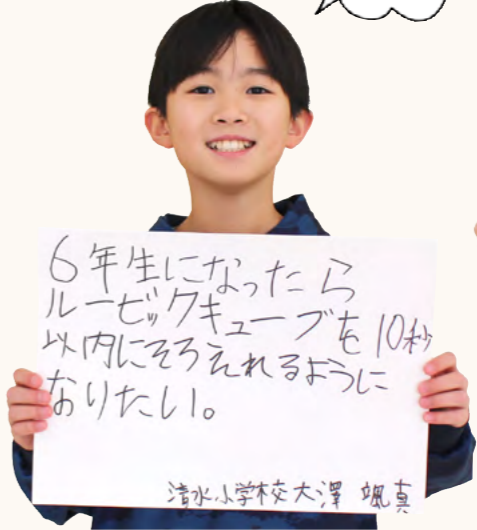 6年生になったら
ルービックキューブを10秒
以内にそろえれるように
なりたい。
清水小学校大澤 颯真